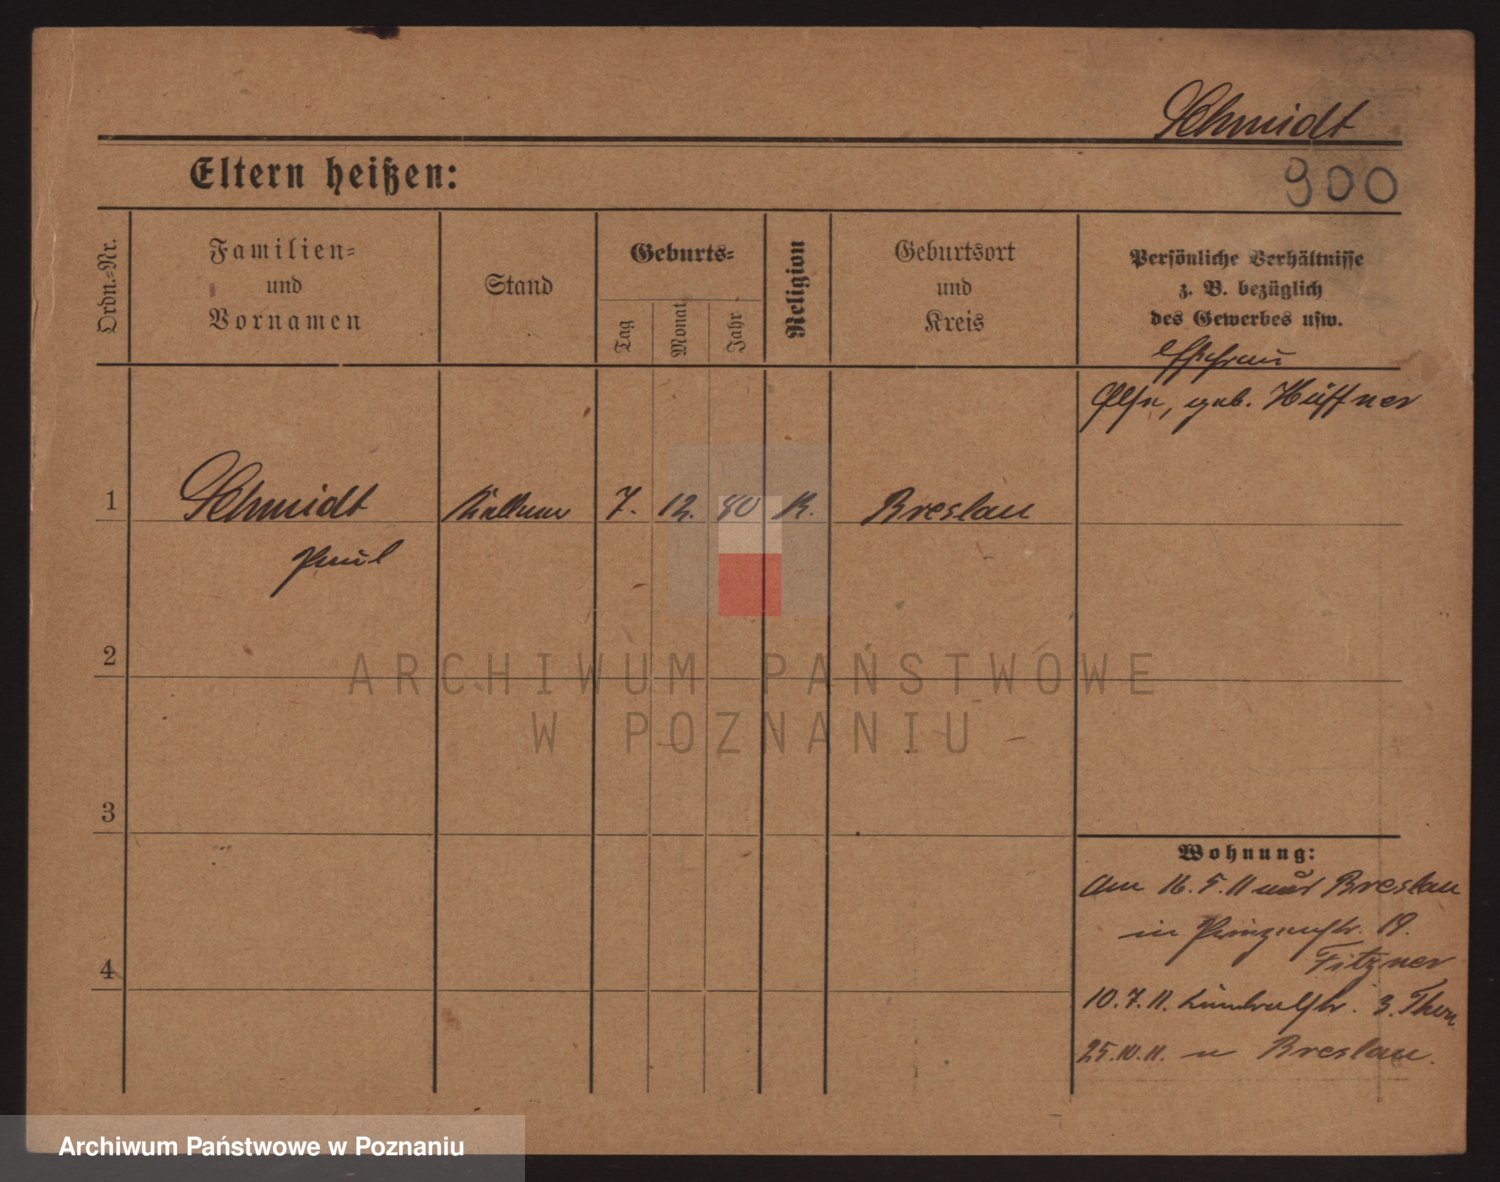 Schmidt
Eltern heißen:
900
Ordn.-Nr.
Familien-
und
Vornamen
Stand
Geburts-
Tag
Monat
Jahr
Religion
Geburtsort
und
Kreis
Persönliche Verhältnisse
z. B. bezüglich
des Gewerbes usw.
Ehefrau
Else, geb. Hüffner
1
Schmidt
Kellner
7.
12.
80
K.
Breslau
Paul
2
ARCHIWUM PAŃSTWOWE
W POZNANIU
3
Wohnung:
Am 16. 5. 11 aus Breslau
in Prinzenstr. 19.
Fitzner
4
10. 7. 11. 3.
25.10.11. n Breslau.
Archiwum Państwowe w Poznaniu